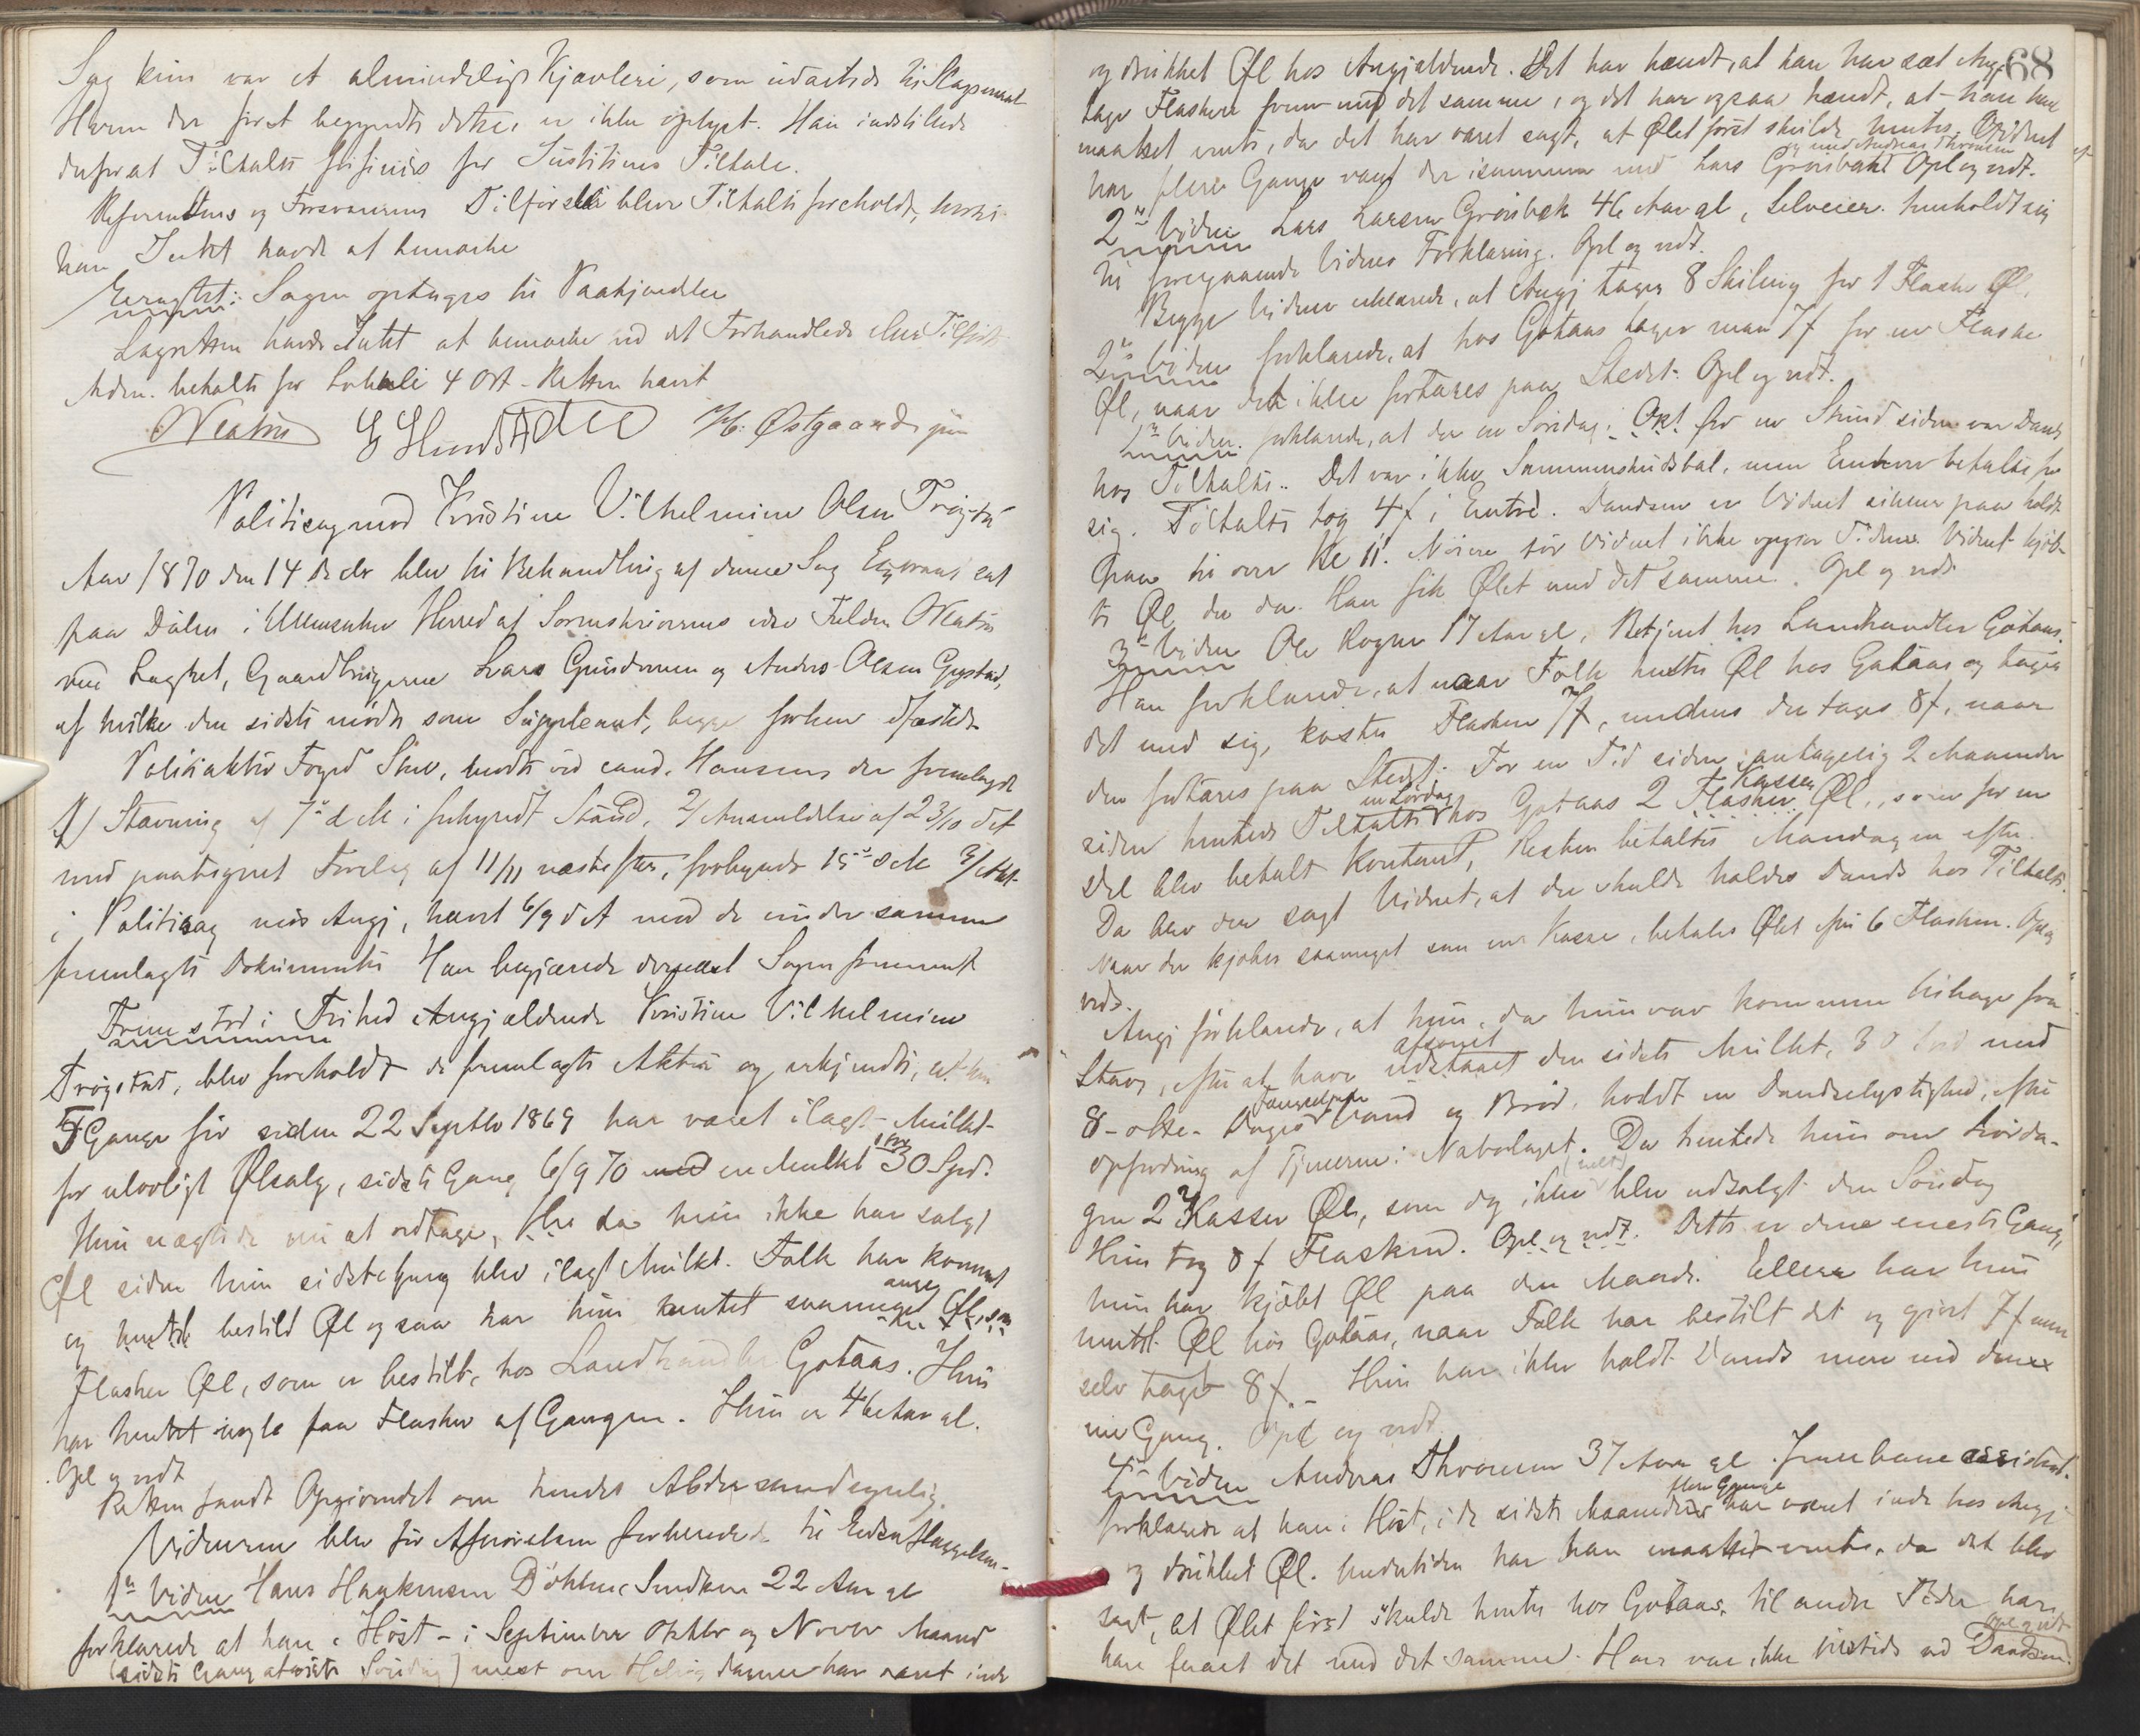 Sag kun var et almindeligt Kjævleri, som udartede til Slagsmaal
Hvem der først begyndte dette, er ikke oplyst. Han indstillede
derfor at Tiltalte frifindes for Justitiens Tiltale.
Referentens og Forsvarerens Tilførsler blev Tiltalte foreholdt, hvortil
han Intet havde at bemærke
Eragtet: Sagen optages til Paakjendelse
Lagretten havde Intet at bemærke ved det Forhandlede eller Tilførte
Mdm. betalte for Lokale 4 Ort - Retten hævet
Politisag mod Kristine Vilhelmine Olsen Trøgstad
Aar 1870 den 14 Decbr blev til Behandling af denne Sag Extraret sat
paa Dølen i Ullensaker Herred af Sorenskriverens edsv Fuldm
med Lagret, Gaardbrugerne Lars Gundersen og Anders Olsen Gystad,
af hvilke den sidste mødte som Suppleant, begge forhen edfæstede
Politiaktor Foged mødte ved cand. Hansen der fremlagde
1/ Stævning af 7de d M i forkyndt Stand, 2/ Anmeldelse af 23/10 d A
med paategnet Forelæg af 11/11 næstefter, forkyndt 15de s M 3/ Akt
i Politisag mod Angj, hævet 6/9 d A med de under samme
fremlagte Dokumenter Han begjærede dernæst Sagen fremmet
Fremstod i Frihed Angjældende Kristine Vilhelmine
Trøgstad, blev foreholdt de fremlagte Akter og erkjendte, at hun
5 Gange før siden 22 Septbr 1869 har været ilagt Mulkt
for ulovligt Ølsalg, sidste Gang 6/9 70 en Mulkt stor 30 Spd.
Hun nægtede nu at vedtage, da hun ikke har solgt
Øl siden hun sidste Gang blev ilagt Mulkt. Folk har kommet
og bestilt Øl og saa har hun hentet saamange
Flasker Øl, som er bestilt, hos Landhandler Gotaas. Hun
har hentet nogle faa Flasker af Gangen. Hun er 46 Aar gl.
Opl og vedt
Retten fandt Opgivendet om hendes Alder sandsynlig.
Vidnerne blev før Afhørelsen forberedede til Edsaflæggelsen
1ste Vidne Hans Haakensen Døhlen, Smedsøn 22 Aar gl
forklarede at han i Høst - i September Oktbr og Novbr Maaned
(sidste Gang Søndag) mest om Helgedagene har været inde
68
og drukket Øl hos Angjældende. Det har hændt, at han har seet Angj
tage Flaskerne frem med det samme, og det har ogsaa hændt, at han har
maattet vente, da det har været sagt, at Ølet først skulde hentes. Vidnet
har flere Gange været der isammen med Lars Grønbæk og med Andreas Thronsen Opl og vedt.
2det Vidne Lars Larsen Grønbæk 46 Aar gl, Selveier henholdt sig
til foregaaende Vidnes Forklaring. Opl og vedt.
Begge Vidner erklærede, at Angj tager 8 Skilling for 1 Flaske Øl.
2det Vidne forklarede, at hos Gotaas tager man 7 ſ for en Flaske
Øl, naar det ikke fortæres paa Stedet. Opl og vedt.
1ste Vidne forklarede, at der en Søndag i Okt for en Stund siden var Dands
hos Tiltalte. Det var ikke Sammenskudsbal, men Enhver betalte for
sig. Tiltalte tog 4 ſ i Entré. Dandsen er Vidnet sikker paa holdt
paa til over Kl 11. Nøiere tør Vidnet ikke opgive Tiden. Vidnet kjøb-
te Øl der da. Han fik Ølet med det samme. Opl og vedt
3die Vidne Ole Rogne 17 Aar gl, Betjent hos Landhandler Gotaas.
Han forklarede, at naar Folk henter Øl hos Gotaas og tager
det med sig, koster Flasken 7 ſ, medens der tages 8 ſ, naar
den fortæres paa Stedet. For en Tid siden, antagelig 2 Maaneder
siden hentede Tiltalte en Lørdag hos Gotaas 2 Kasser Øl, som for en
Del blev betalt kontant, Resten betaltes Mandagen efter.
Da blev der sagt Vidnet, at der skulde holdes Dands hos Tiltalte.
Naar der kjøbes saameget som en Kasse, betales Ølet efter 6 Flasken. Opl og
vedt.
Angj forklarede, at hun, da hun var kommen tilbage fra
efter at have afsonet den sidste Mulkt, 30 med
8 - otte - Dages Fængsel paa Vand og Brød, holdt en Dandselystighed, efter
Opfordring af Tjenerne i Nabolaget. Da hentede hun om Lørda-
gen 2 Kasser Øl, som dog ikke blev udsolgt den Søndag
Hun tog 8 ſ Flasken. Opl og vedt. Dette er den eneste Gang,
hun har kjøbt Øl paa den Maade. Ellers har hun
hentet Øl hos Gotaas, naar Folk har bestilt det og givet 7 ſ men
selv taget 8 ſ. - Hun har ikke holdt Dands mere end denne
ene Gang. Opl og vedt.
4de Vidne Andreas Thronsen 37 Aar gl Jernbaneassistent.
forklarede at han i Høst, i de sidste Maaneder flere Gange har været inde hos Angj
og drukket Øl. Undertiden har han maattet vente, da det blev
sagt, at Ølet først skulde hentes hos Gotaas, til andre Tider har
han faaet det med det samme. Han var ikke tilstede ved Dandsen. Opl og vedt